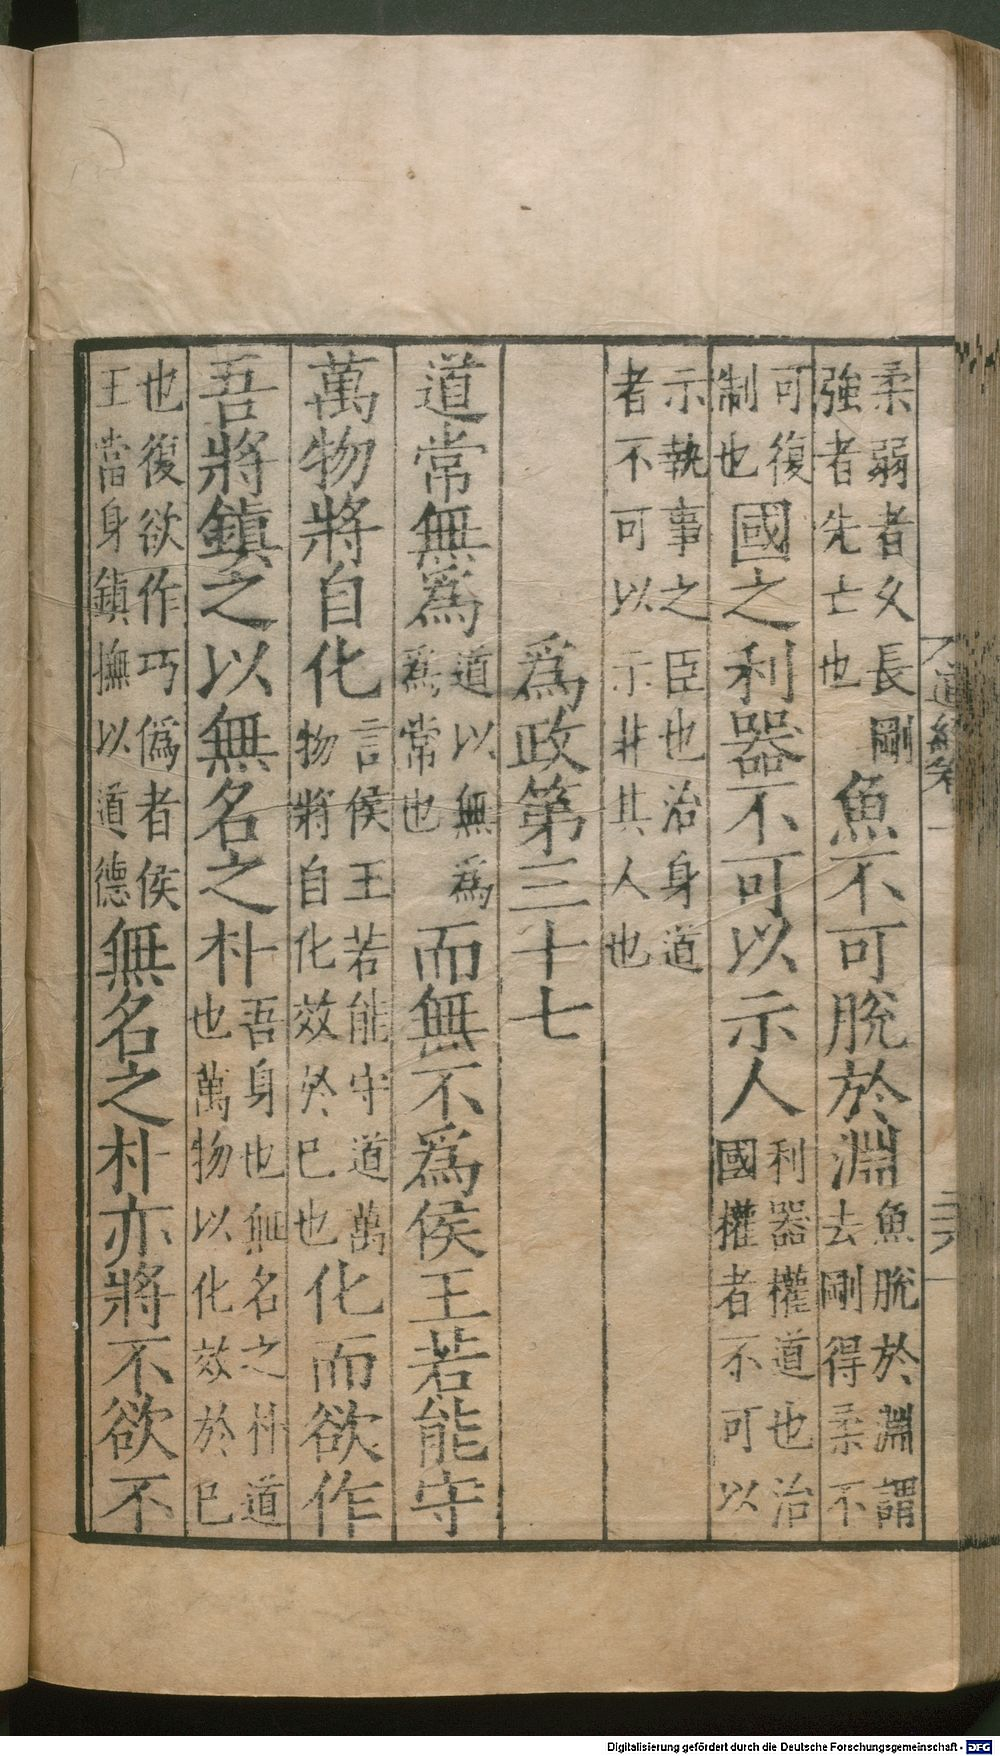 柔弱者久長剛強者先亡也魚不可脫於淵魚脫於淵謂去剛得柔不
可復制也國之利器不可以示人利器權道也治國權者不可以
示執事之臣也治身道者不可以示非其人也
爲政第三十七
道常無爲道以無爲爲常也而無不爲侯王若能守
萬物將自化言侯王若能守道萬物將自化效於已也化而欲作
吾將鎮之以無名之朴吾身也無名之朴道也萬物以化效於已
也復欲作巧僞者侯王當身鎮撫以道德無名之朴亦將不欲不
道經卷一
Digitalisierung gefördert durch die Deutsche Forschungsgemeinschaft - DFG